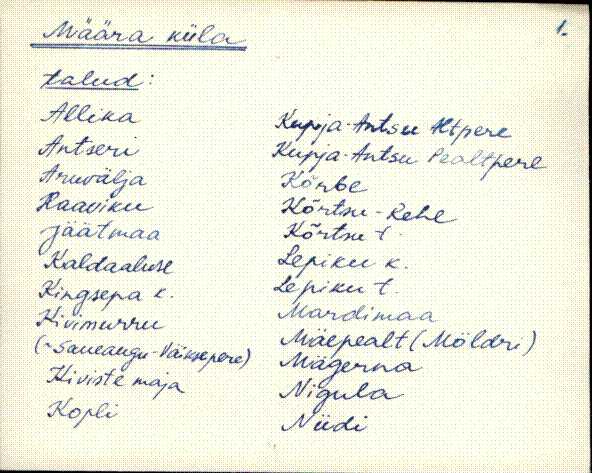 1.
Määra küla
talud:
Allika
Antseri
Aruvälja
Raaviku
Jäätmaa
Kaldaaluse
Kingsepa k.
Kivimurru
(~Saueaugu-Väiksepere)
Kiviste maja
Kopli
Kupja-Antsu Altpere
Kupja-Antsu Pealtpere
Kõrbe
Kõrtsu-Rehe
Kõrtsu t.
Lepiku k.
Lepiku t.
Mardimaa
Mäepealt (Möldri)
Mägerna
Nigula
Niidi